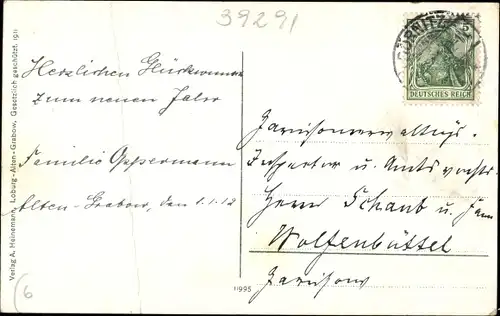 39291
Herzlichen Glückwunsch
zum neuen Jahr
Familie Oppermann
Alten-Grabow, den 1.1.12
DEUTSCHES REICH
Garnisonverwaltungs-
Inspektor u. Amtsvorsts.
Herrn Schaub u. Fam
Wolfenbüttel
Garnison
11995
Verlag A. Heinemann, Loburg-Alten-Grabow. Gesetzlich geschützt. 1911
(6